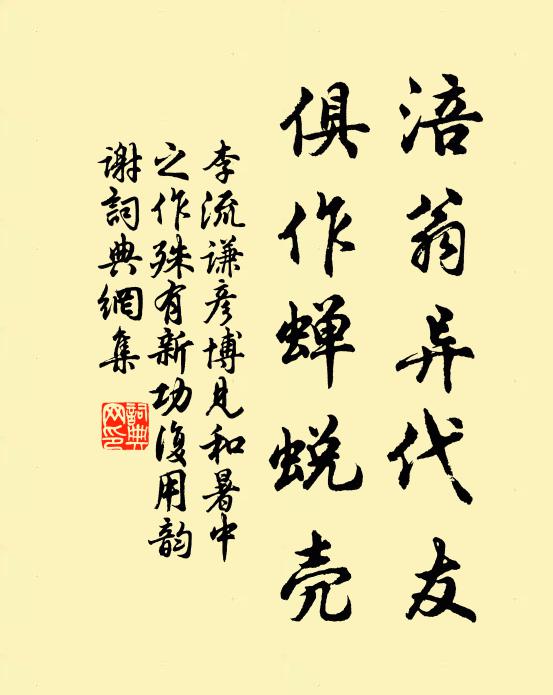 涪翁异代友
俱作蝉蜕壳
李流谦彦博见和暑中
之作殊有新功复用韵
谢詞典網集
詞典
网印